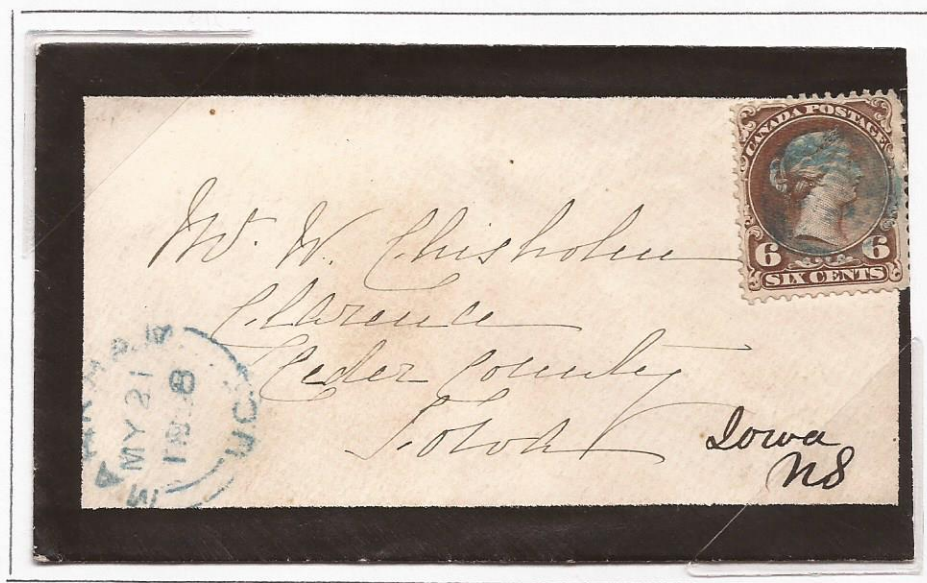 CANADA POSTAGE
6 6
SIX CENTS
Mr. W. Chisholm
Clarence
Ceder County
Iowa
Iowa
NS
MY 21
U.C.